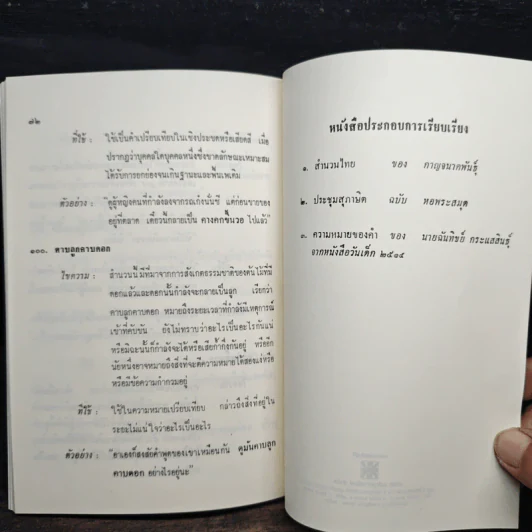 ๘๒
ที่ใช้ : ใช้เป็นคำเปรียบเทียบในเชิงประชดหรือเสียดสี เมื่อ
ปรากฏว่าบุคคลใดบุคคลหนึ่งซึ่งขาดลักษณะเหมาะสม
ได้รับการยกย่องจนเกินฐานะและพื้นเพเดิม
ตัวอย่าง : "ดูผู้หญิงคนที่กำลังลงจากรถเก๋งนั่นซี แต่ก่อนขายของ
อยู่ที่ตลาด เดี๋ยวนี้กลายเป็น คางคกขึ้นวอ ไปแล้ว"
๑๐๐. คาบลูกคาบดอก
ไขความ : สำนวนนี้มีที่มาจากการสังเกตธรรมชาติของต้นไม้ที่มี
ดอกแล้วและดอกนั้นกำลังจะกลายเป็นลูก เรียกว่า
คาบลูกคาบดอก หมายถึงระยะเวลาที่กำลังมีเหตุการณ์
เข้าที่คับขัน ยังไม่ทราบว่าอะไรเป็นอะไรกันแน่
หรือมิฉะนั้นก็กำลังจะได้หรือเสียก้ำกึ่งกันอยู่ หรืออีก
นัยหนึ่งอาจหมายถึงสิ่งที่จะตีความหมายได้สองแง่หรือ
หรือมีข้อความกำกวมอยู่
ที่ใช้ : ใช้ในความหมายเปรียบเทียบ กล่าวถึงสิ่งที่อยู่ใน
ระยะไม่แน่ใจว่าอะไรเป็นอะไร
ตัวอย่าง : "อาเองก็สงสัยคำพูดของเขาเหมือนกัน ดูมันคาบลูก
คาบดอก อย่างไรอยู่นะ"
หนังสือประกอบการเรียบเรียง
๑. สำนวนไทย ของ กาญจนาคพันธุ์
๒. ประชุมสุภาษิต ฉบับ หอพระสมุด
๓. ความหมายของคำ ของ นายฉันทิชย์ กระแสสินธุ์
จากหนังสือวันเด็ก ๒๕๑๕